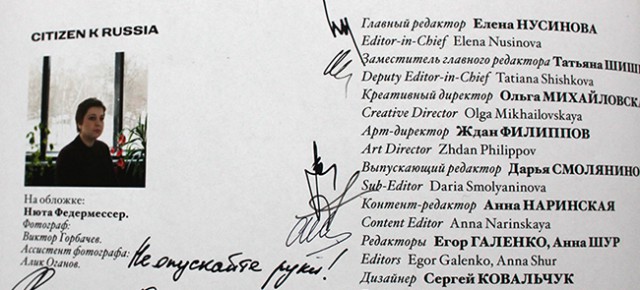 CITIZEN K RUSSIA
На обложке:
Нюта Федермессер.
Фотограф:
Виктор Горбачев.
Ассистент фотографа:
Алик Оганов.
Не опускайте руки!
Главный редактор Елена НУСИНОВА
Editor-in-Chief Elena Nusinova
Заместитель главного редактора Татьяна ШИШ
Deputy Editor-in-Chief Tatiana Shishkova
Креативный директор Ольга МИХАЙЛОВСКА
Creative Director Olga Mikhailovskaya
Арт-директор Ждан ФИЛИППОВ
Art Director Zhdan Philippov
Выпускающий редактор Дарья СМОЛЯНИНО
Sub-Editor Daria Smolyaninova
Контент-редактор Анна НАРИНСКАЯ
Content Editor Anna Narinskaya
Редакторы Егор ГАЛЕНКО, Анна ШУР
Editors Egor Galenko, Anna Shur
Дизайнер Сергей КОВАЛЬЧУК